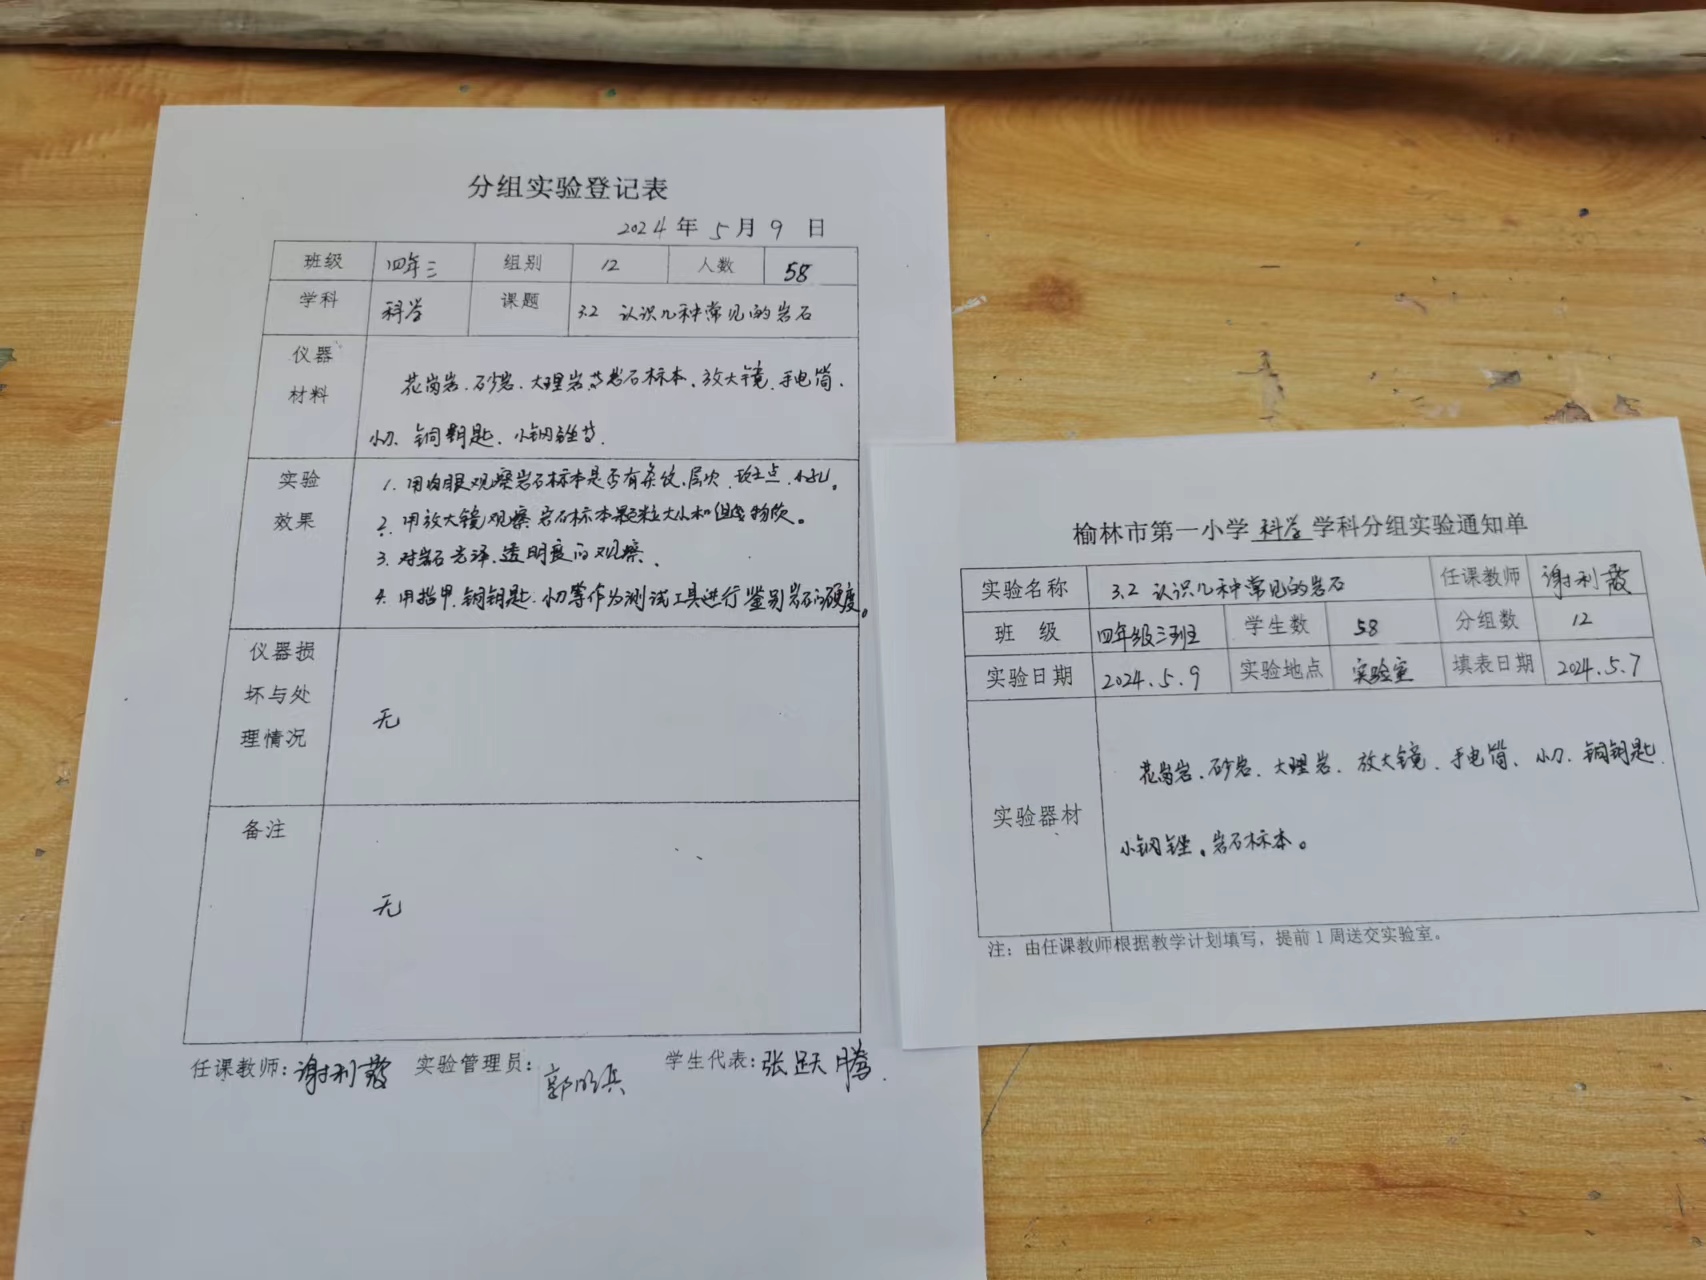 分组实验登记表
2024年5月9日
班级 四年三 组别 12 人数 58
学科 科学 课题 3.2 认识几种常见的岩石
仪器材料 花岗岩、砂岩、大理岩等岩石标本、放大镜、手电筒、
小刀、铜钥匙、小钢锉等.
实验效果 1. 用肉眼观察岩石标本是否有条纹、层次、斑点、小孔。
2. 用放大镜观察岩石标本颗粒大小和组成物质。
3. 对岩石光泽、透明度的观察.
4. 用指甲、铜钥匙、小刀等作为测试工具进行鉴别岩石的硬度。
仪器损坏与处理情况 无
备注 无
任课教师:谢利霞 实验管理员: 学生代表:张跃腾.
榆林市第一小学 科学 学科分组实验通知单
实验名称 3.2 认识几种常见的岩石 任课教师 谢利霞
班级 四年级三班 学生数 58 分组数 12
实验日期 2024.5.9 实验地点 实验室 填表日期 2024.5.7
实验器材 花岗岩、砂岩、大理岩、放大镜、手电筒、小刀、铜钥匙.
小钢锉。岩石标本。
注：由任课教师根据教学计划填写，提前1周送交实验室。